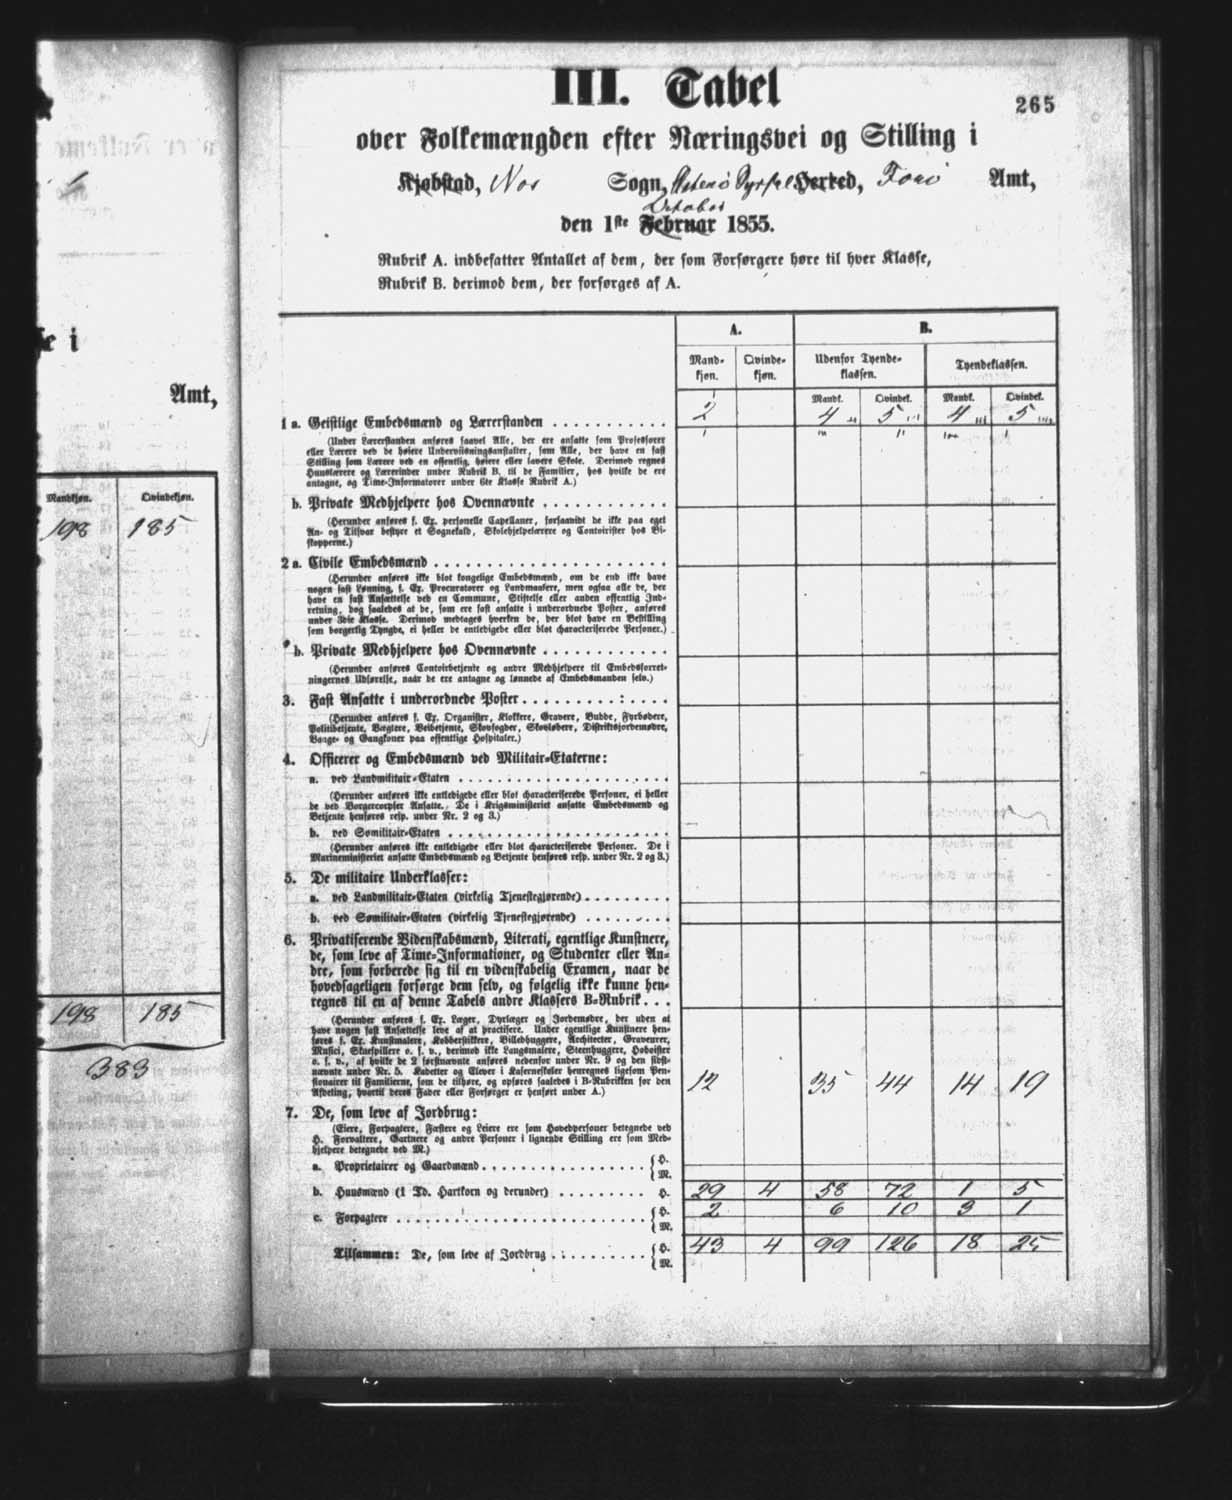 265
III. Tabel
over Folkemængden efter Næringsvei og Stilling i
Kjøbstad, Nos Sogn, Østerø Syssel Herred, Færø Amt,
October
den 1ste Februar 1855.
Rubrik A. indbefatter Antallet af dem, der som Forsørgere høre til hver Klasse,
Rubrik B. derimod dem, der forsørges af A.
A. B.
Mandkjøn. Qvindekjøn. Udenfor Tyendeklassen. Tyendeklassen.
Mandk. Qvindek. Mandk. Qvindek.
1 a. Geistlige Embedsmænd og Lærerstanden 2 4 5 4 5
(Under Lærerstanden anføres saavel Alle, der ere ansatte som Professorer
eller Lærere ved de høiere Underviisningsanstalter, som Alle, der have en fast
Stilling som Lærere ved en offentlig, høiere eller lavere Skole. Derimod regnes
Huuslærere og Lærerinder under Rubrik B. til de Familier, hos hvilke de ere
antagne, og Time-Informatorer under 6te Klasse Rubrik A.)
b. Private Medhjelpere hos Ovennævnte
(Herunder anføres f. Ex. personelle Capellaner, forsaavidt de ikke paa eget
An- og Tilsvar bestyre et Sognekald, Skolehjelpelærere og Contoirister hos Biskopperne.)
2 a. Civile Embedsmænd
(Herunder anføres ikke blot kongelige Embedsmænd, om de end ikke have
nogen fast Lønning, f. Ex. Procuratorer og Landmaalere, men ogsaa alle de, der
have en fast Ansættelse ved en Commune, Stiftelse eller anden offentlig Indretning,
dog saaledes at de, som ere fast ansatte i underordnede Poster, anføres
under 3die Klasse. Derimod medtages hverken de, der blot have en Bestilling
som borgerlig Tyngde, ei heller de entledigede eller blot characteriserede Personer.)
b. Private Medhjelpere hos Ovennævnte
(Herunder anføres Contoirbetjente og andre Medhjelpere til Embedsforretningernes
Udførelse, naar de ere antagne og lønnede af Embedsmanden selv.)
3. Fast Ansatte i underordnede Poster
(Herunder anføres f. Ex. Organister, Klokkere, Gravere, Budde, Fyrbødere,
Politibetjente, Vægtere, Veibetjente, Skovfogder, Skovløbere, Distriktsjordemødre,
Vaage- og Gangkoner paa offentlige Hospitaler.)
4. Officerer og Embedsmænd ved Militair-Etaterne:
a. ved Landmilitair-Etaten
(Herunder anføres ikke entledigede eller blot characteriserede Personer, ei heller
de ved Borgercorpser Ansatte. De i Krigsministeriet ansatte Embedsmænd og
Betjente henføres resp. under Nr. 2 og 3.)
b. ved Sømilitair-Etaten
(Herunder anføres ikke entledigede eller blot characteriserede Personer. De i
Marineministeriet ansatte Embedsmænd og Betjente henføres resp. under Nr. 2 og 3.)
5. De militaire Underklasser:
a. ved Landmilitair-Etaten (virkelig Tjenestegjørende)
b. ved Sømilitair-Etaten (virkelig Tjenestegjørende)
6. Privatiserende Videnskabsmænd, Literati, egentlige Kunstnere,
de, som leve af Time-Informationer, og Studenter eller Andre,
som forberede sig til en videnskabelig Examen, naar de
hovedsageligen forsørge dem selv, og følgelig ikke kunne henregnes
til en af denne Tabels andre Klassers B-Rubrik
(Herunder anføres f. Ex. Læger, Dyrlæger og Jordemødre, der uden at
have nogen fast Ansættelse leve af at practisere. Under egentlige Kunstnere henføres
f. Ex. Kunstmalere, Kobberstikkere, Billedhuggere, Architecter, Graveurer,
Musici, Skuespillere o. s. v., derimod ikke Laugsmalere, Steenhuggere, Hoboister
o. s. v., af hvilke de 2 førstnævnte anføres nedenfor under Nr. 9 og den sidstnævnte
under Nr. 5. Kadetter og Elever i Kaserneskoler henregnes ligesom Pensionairer
til Familierne, som de tilhøre, og opføres saaledes i B-Rubrikken for den
Afdeling, hvortil deres Fader eller Forsørger er henført under A.)
7. De, som leve af Jordbrug:
(Eiere, Forpagtere, Fæstere og Leiere ere som Hovedpersoner betegnede ved
H. Forvaltere, Gartnere og andre Personer i lignende Stilling ere som Medhjelpere
betegnede ved M.)
a. Proprietairer og Gaardmænd H. M. 12 35 44 14 19
b. Huusmænd (1 Td. Hartkorn og derunder) H. 29 4 58 72 1 5
c. Forpagtere H. M. 2 6 10 3 1
Tilsammen: De, som leve af Jordbrug H. M. 43 4 99 126 18 25
Amt,
Mandkjøn. Qvindekjøn.
198 185
198 185
383